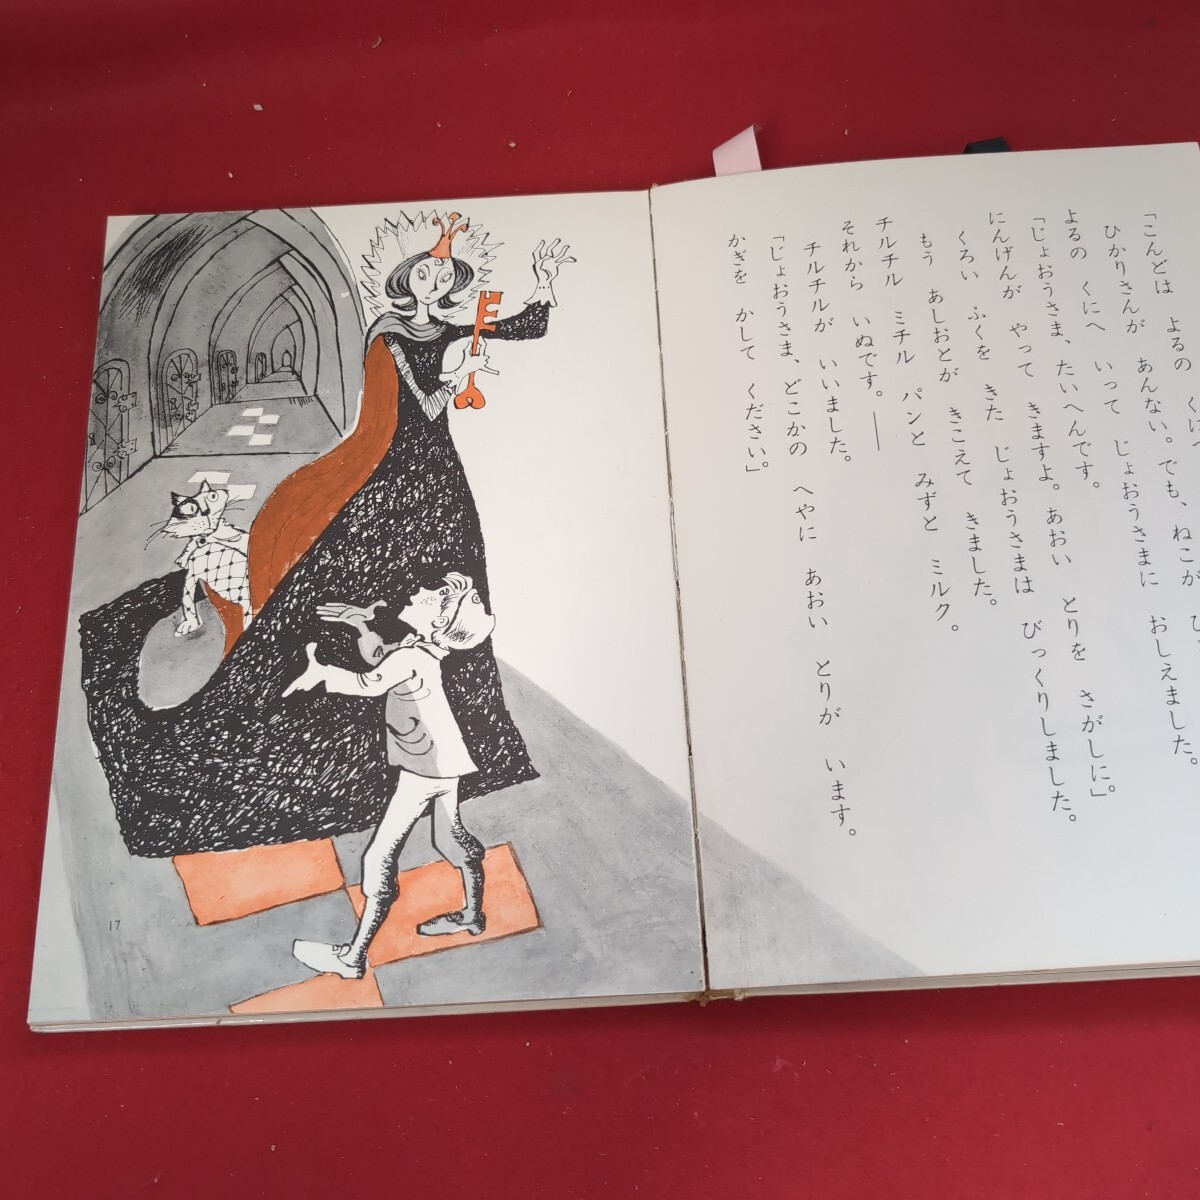 「こんどは よるの くにへ
ひかりさんが あんない。でも、ねこが
よるの くにへ いって じょおうさまに おしえました。
「じょおうさま、たいへんです。
にんげんが やって きますよ。あおい とりを さがしに」
くろい ふくを きた じょおうさまは びっくりしました。
もう あしおとが きこえて きました。
チルチル ミチル パンと みずと ミルク。
それから いぬです。――
チルチルが いいました。
「じょおうさま、どこかの へやに あおい とりが います。
かぎを かして ください」
17